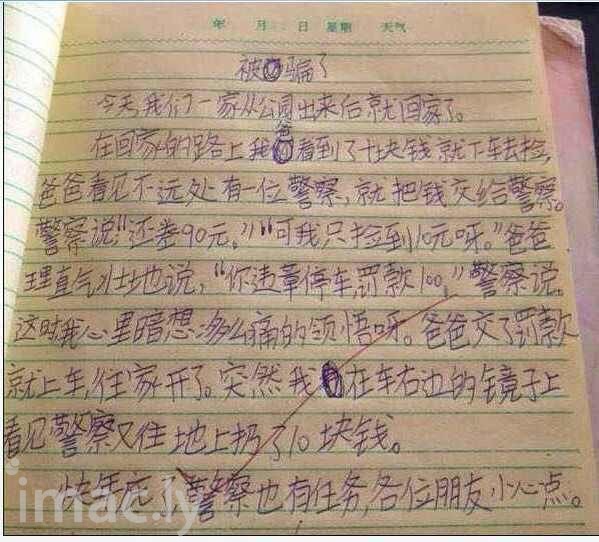 年 月 日 星期 天气
被骗了
今天我们一家从公园出来后就回家了。
在回家的路上我爸看到了十块钱就下车去捡,
爸爸看见不远处有一位警察,就把钱交给警察。
警察说“还差90元。”“可我只捡到10元呀。”爸爸
理直气壮地说,“你违章停车罚款100,”警察说。
这时我心里暗想:多么痛的领悟呀。爸爸交了罚款
就上车,往家开了。突然我在车右边的镜子上
看见警察又往地上扔了10块钱。
快年底了,警察也有任务,各位朋友小心点。
imac.ly